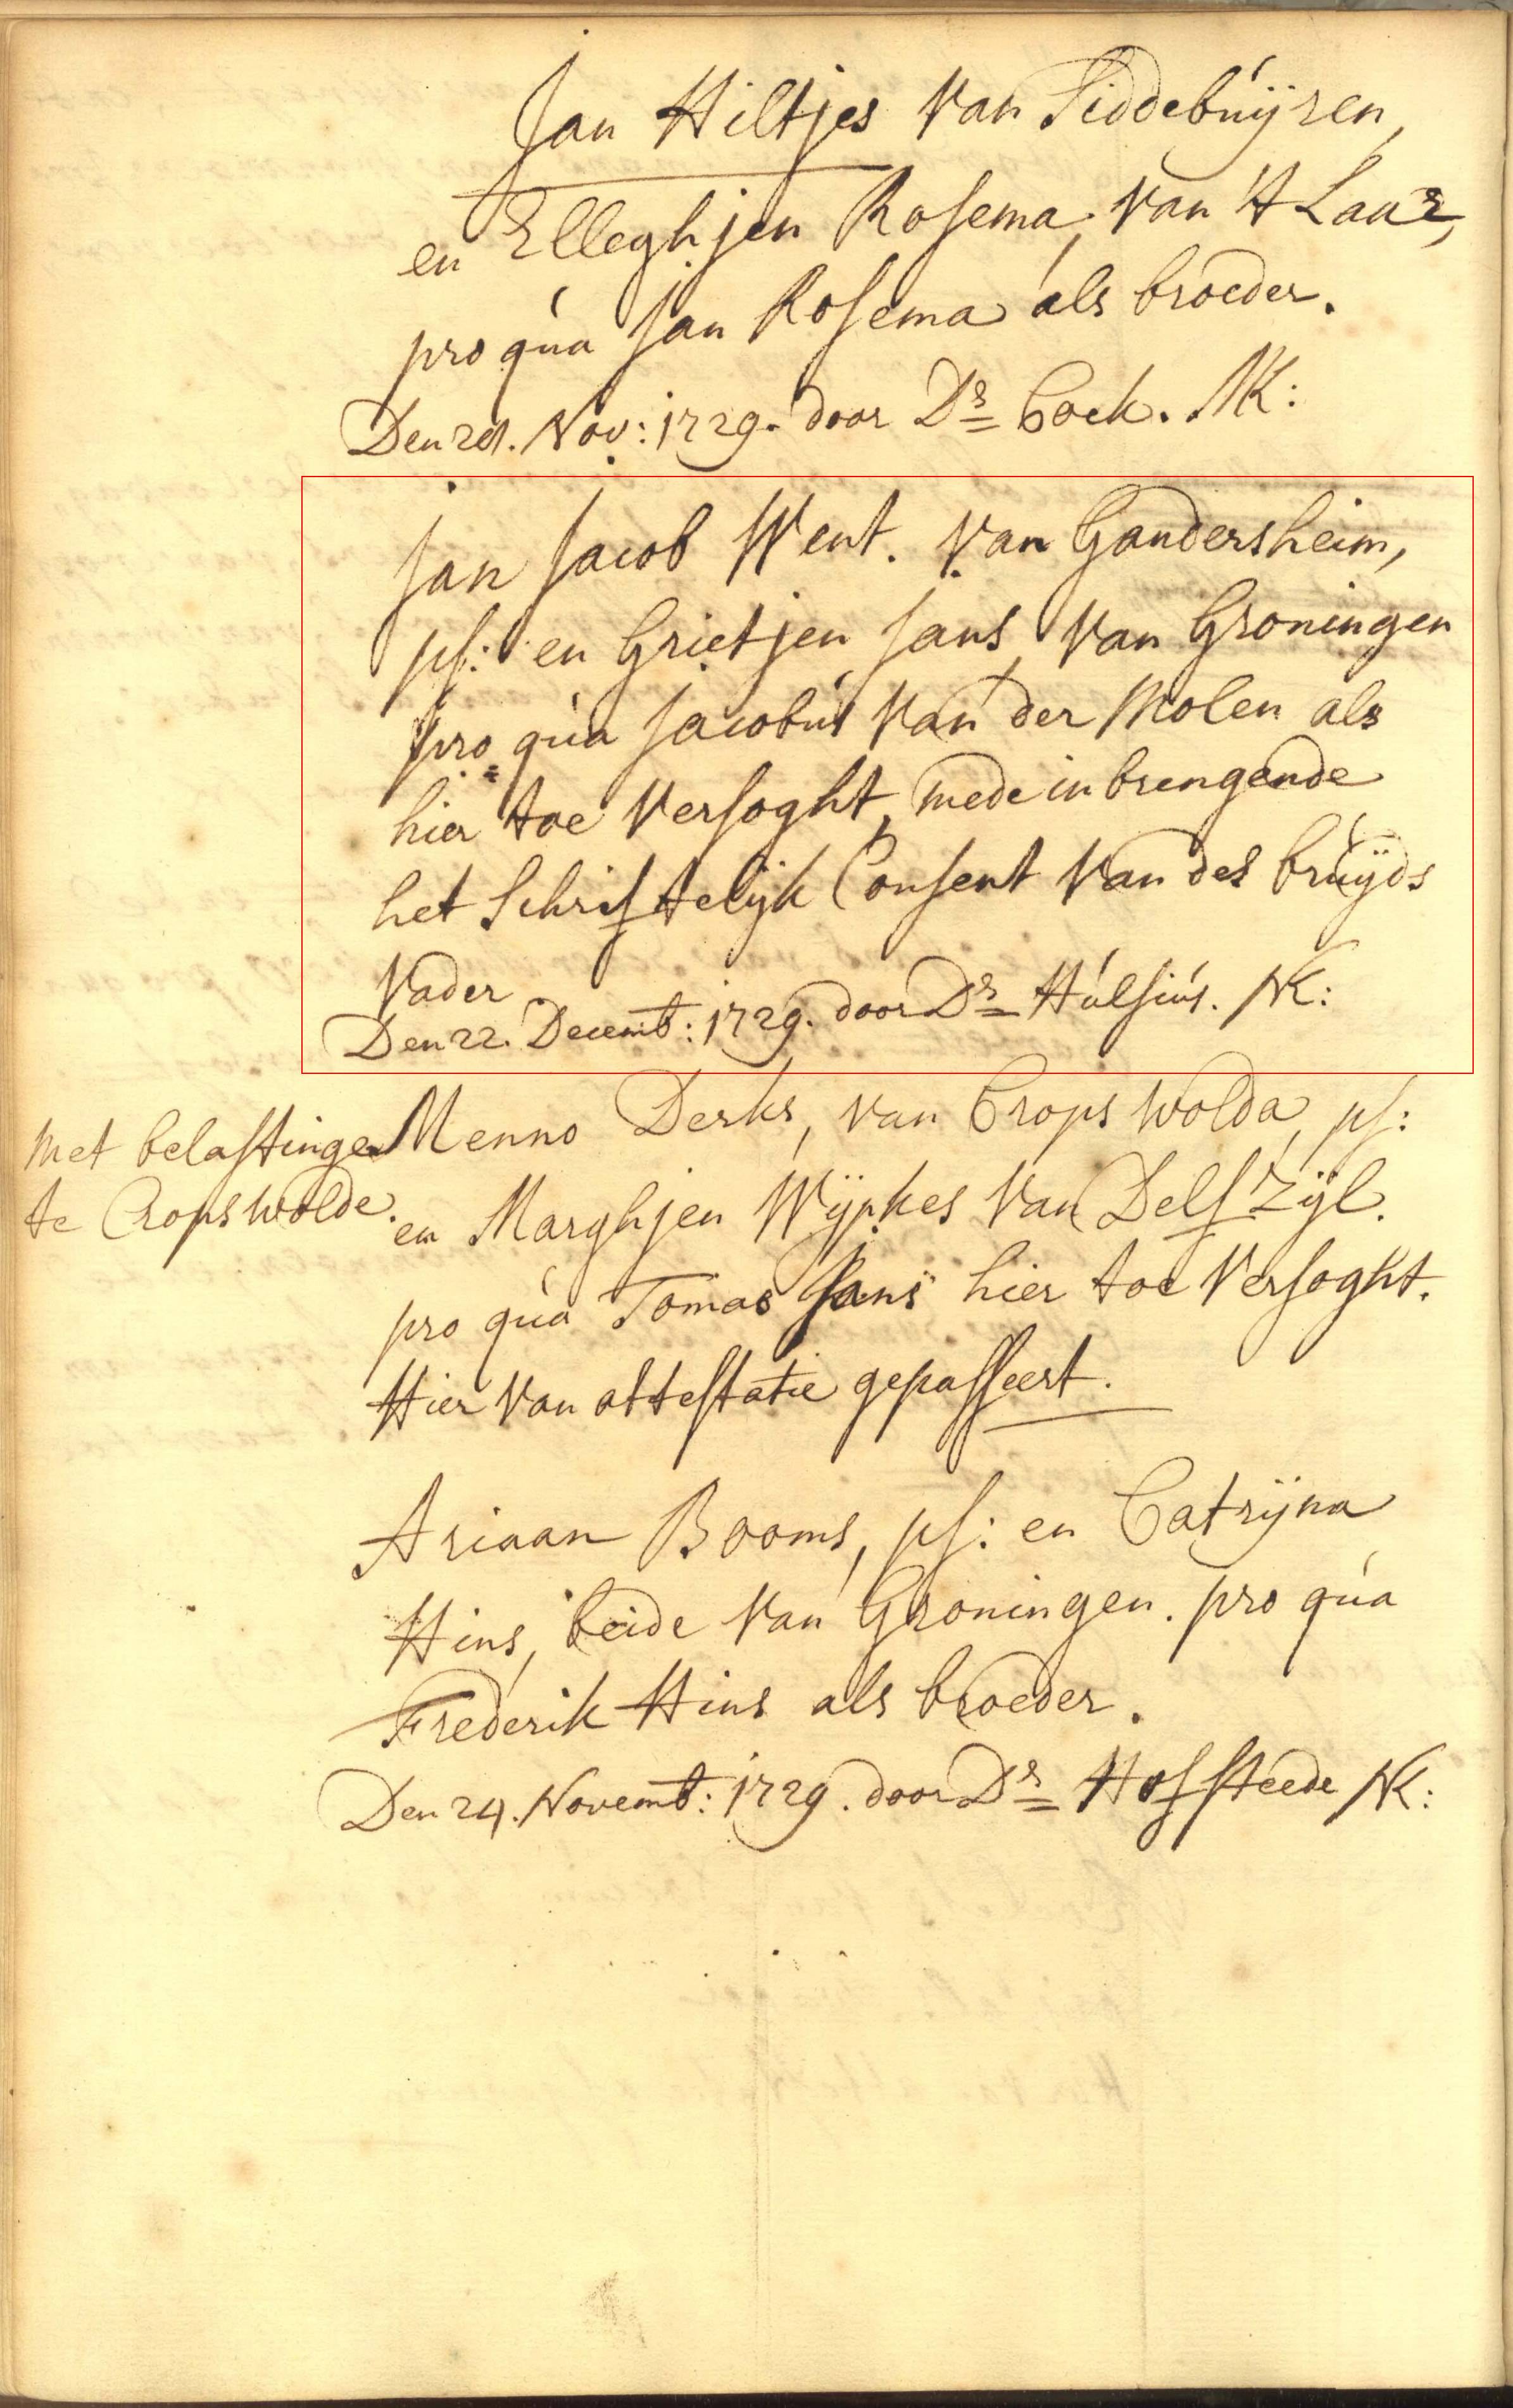 Jan Hiltjes van Siddebuijren,
en Elleghjen Rosema, van 't Laar,
pro qua Jan Rosema als broeder.
Den 21. Nov: 1729. door Ds Cock. NK:
Jan Jacob Went. van Gandersheim,
ps: en Grietjen Jans, van Groningen
pro qua Jacobus van der Molen als
hier toe versoght, mede inbrengende
het Schriftelijk Consent van des bruijds
Vader
Den 22. Decemb: 1729. door Ds Hulsius. NK:
Menno Derks, van Cropswolda, ps:
Met belastinge
te Cropswolde.
en Marghjen Wijpkes van Delfzijl.
pro qua Tomas Jans hier toe versoght.
Hier van attestatie gepasseert.
Ariaan Booms, ps: en Catrijna
Hins, beide van Groningen. pro qua
Frederik Hins als broeder.
Den 24. Novemb: 1729. door Ds Hofsteede NK: